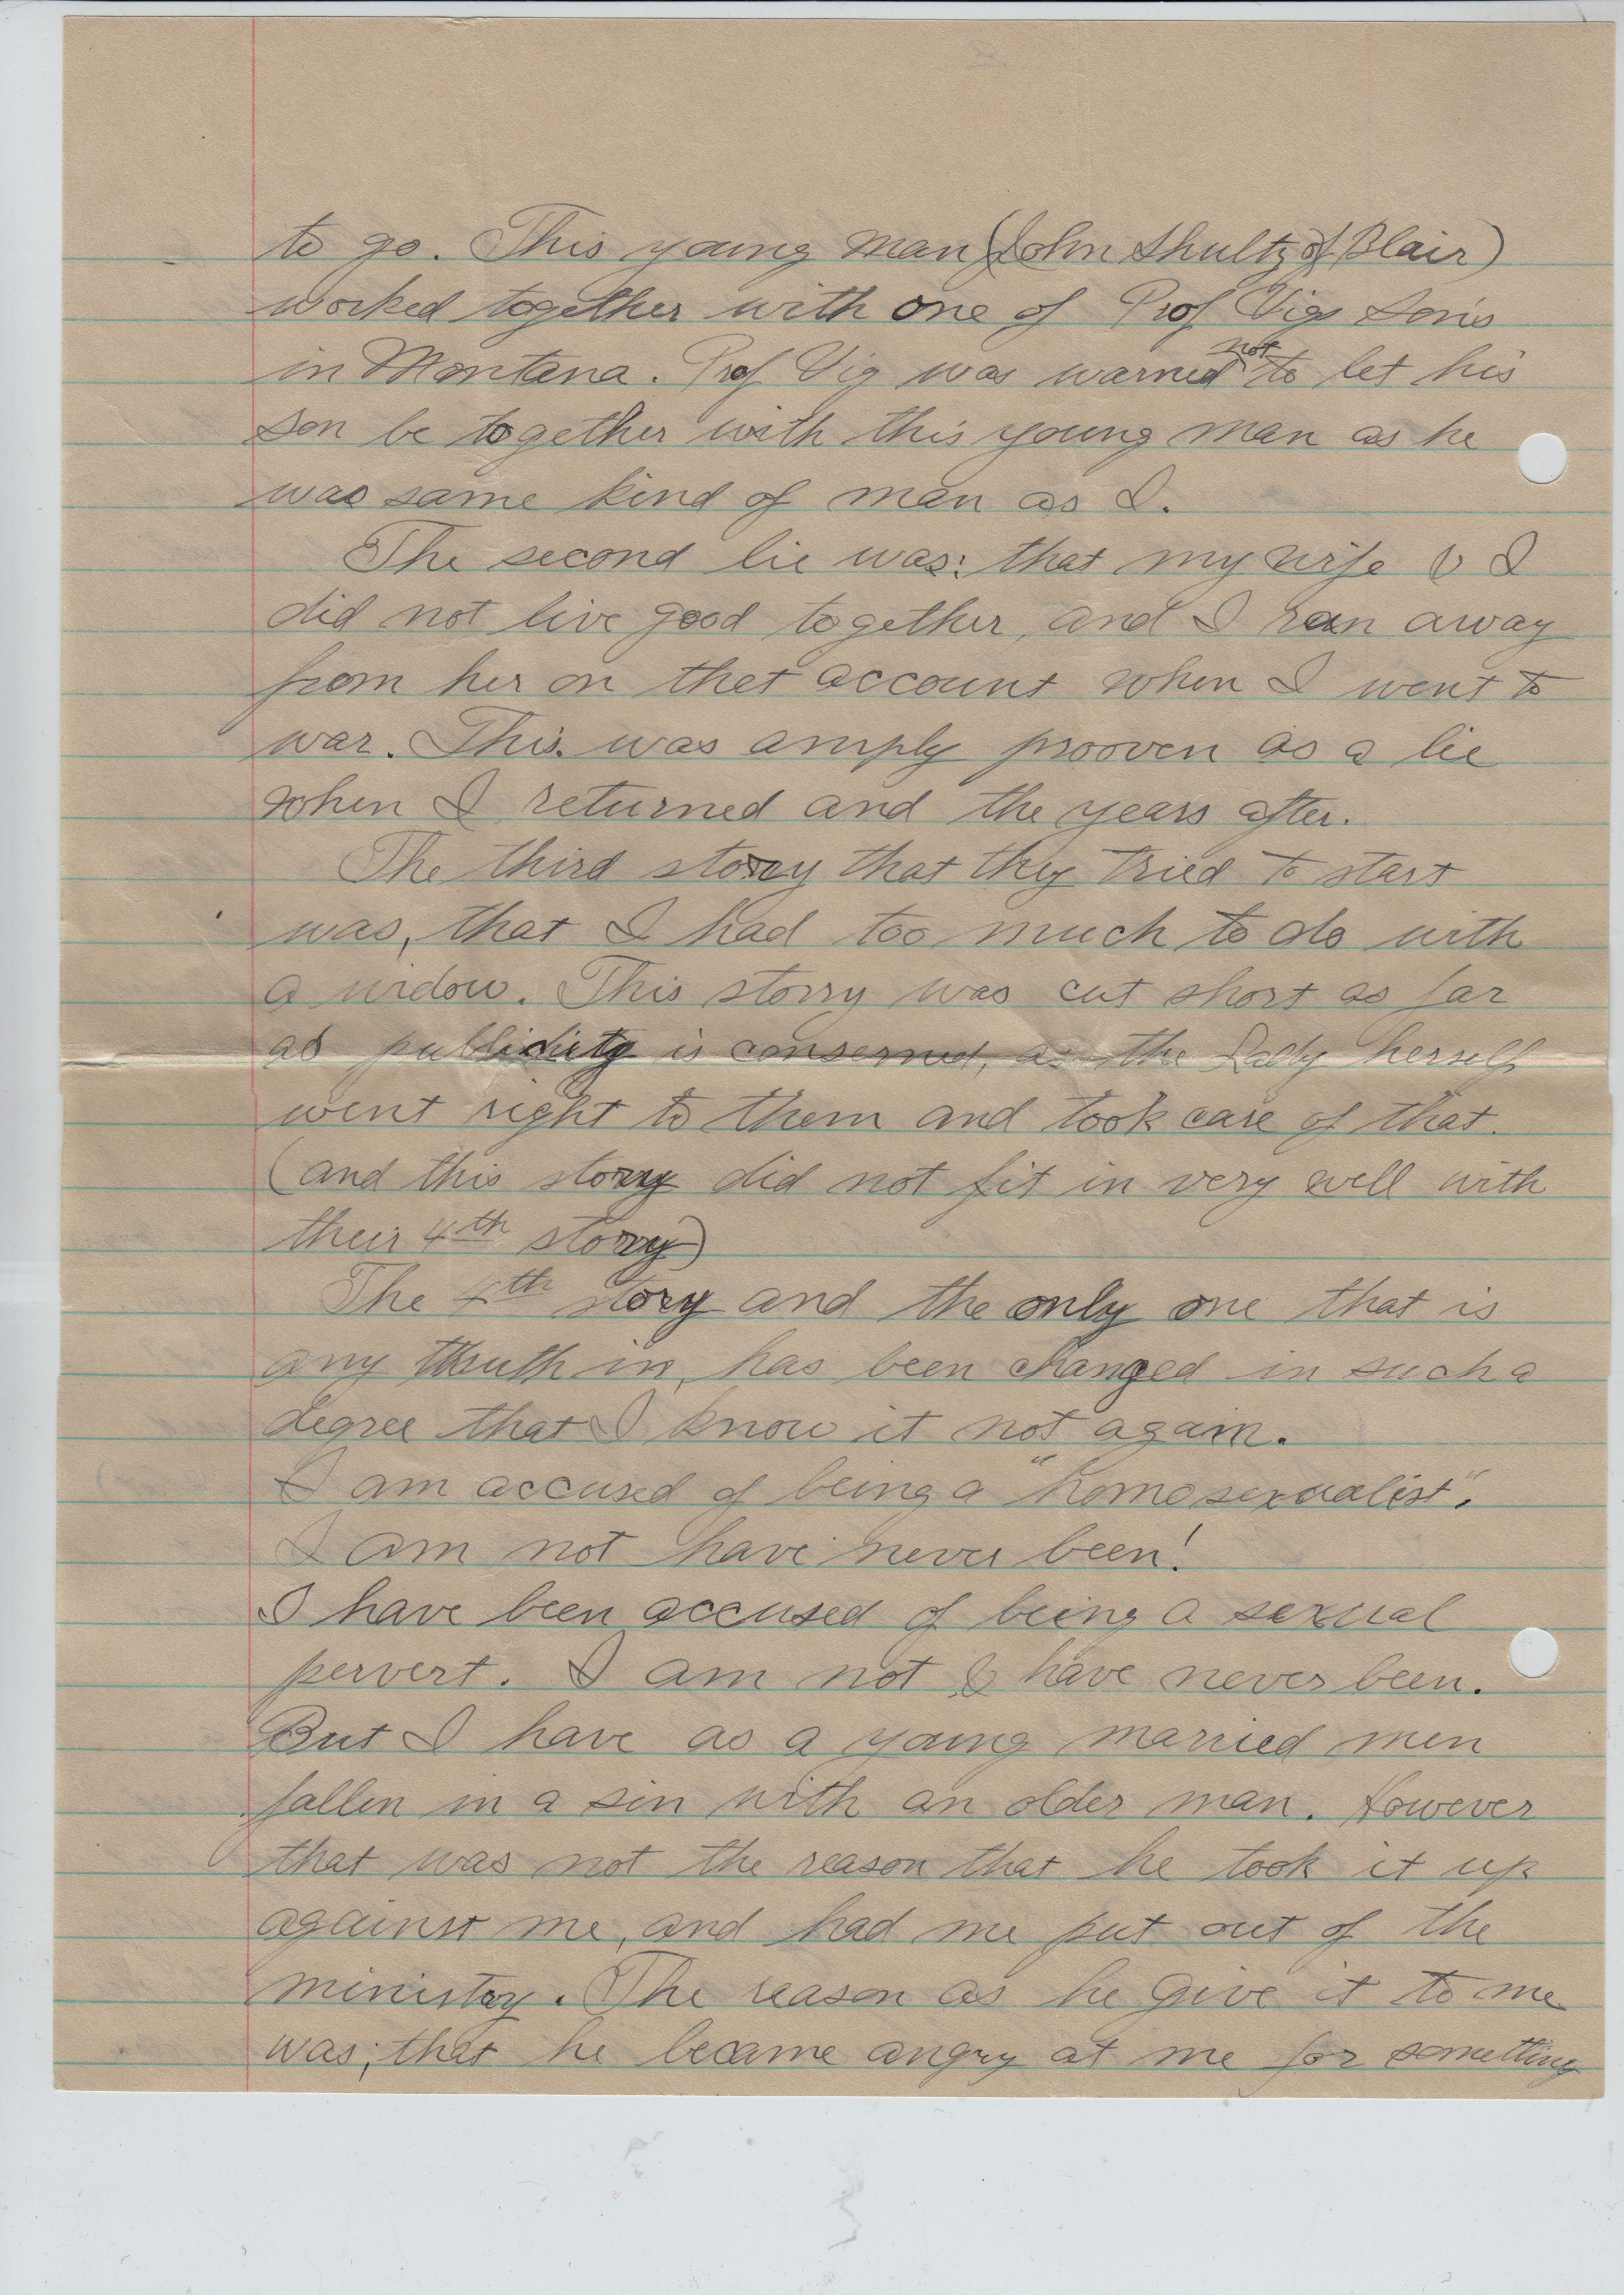 to go. This young man (John Shultz of Blair)
worked together with one of Prof Vigs sons
in Montana. Prof Vig was warned not to let his
son be together with this young man as he
was same kind of man as I.
The second lie was: that my wife & I
did not live good together, and I ran away
from her on thet account when I went to
war. This was amply prooven as a lie
when I returned and the years after.
The third story that they tried to start
was, that I had too much to do with
a widow. This storry was cut short as far
as publicity is conserned, as the Lady herself
went right to them and took care of that.
(and this story did not fit in very well with
their 4th story)
The 4th story and the only one that is
any thruth in, has been changed in such a
degree that I know it not again.
I am accused of being a "homosexualist".
I am not have never been!
I have been accused of being a sexual
pervert. I am not & have never been.
But I have as a young married men
fallen in a sin with an older man. However
that was not the reason that he took it up
against me, and had me put out of the
ministry. The reason as he give it to me
was; that he became angry at me for something